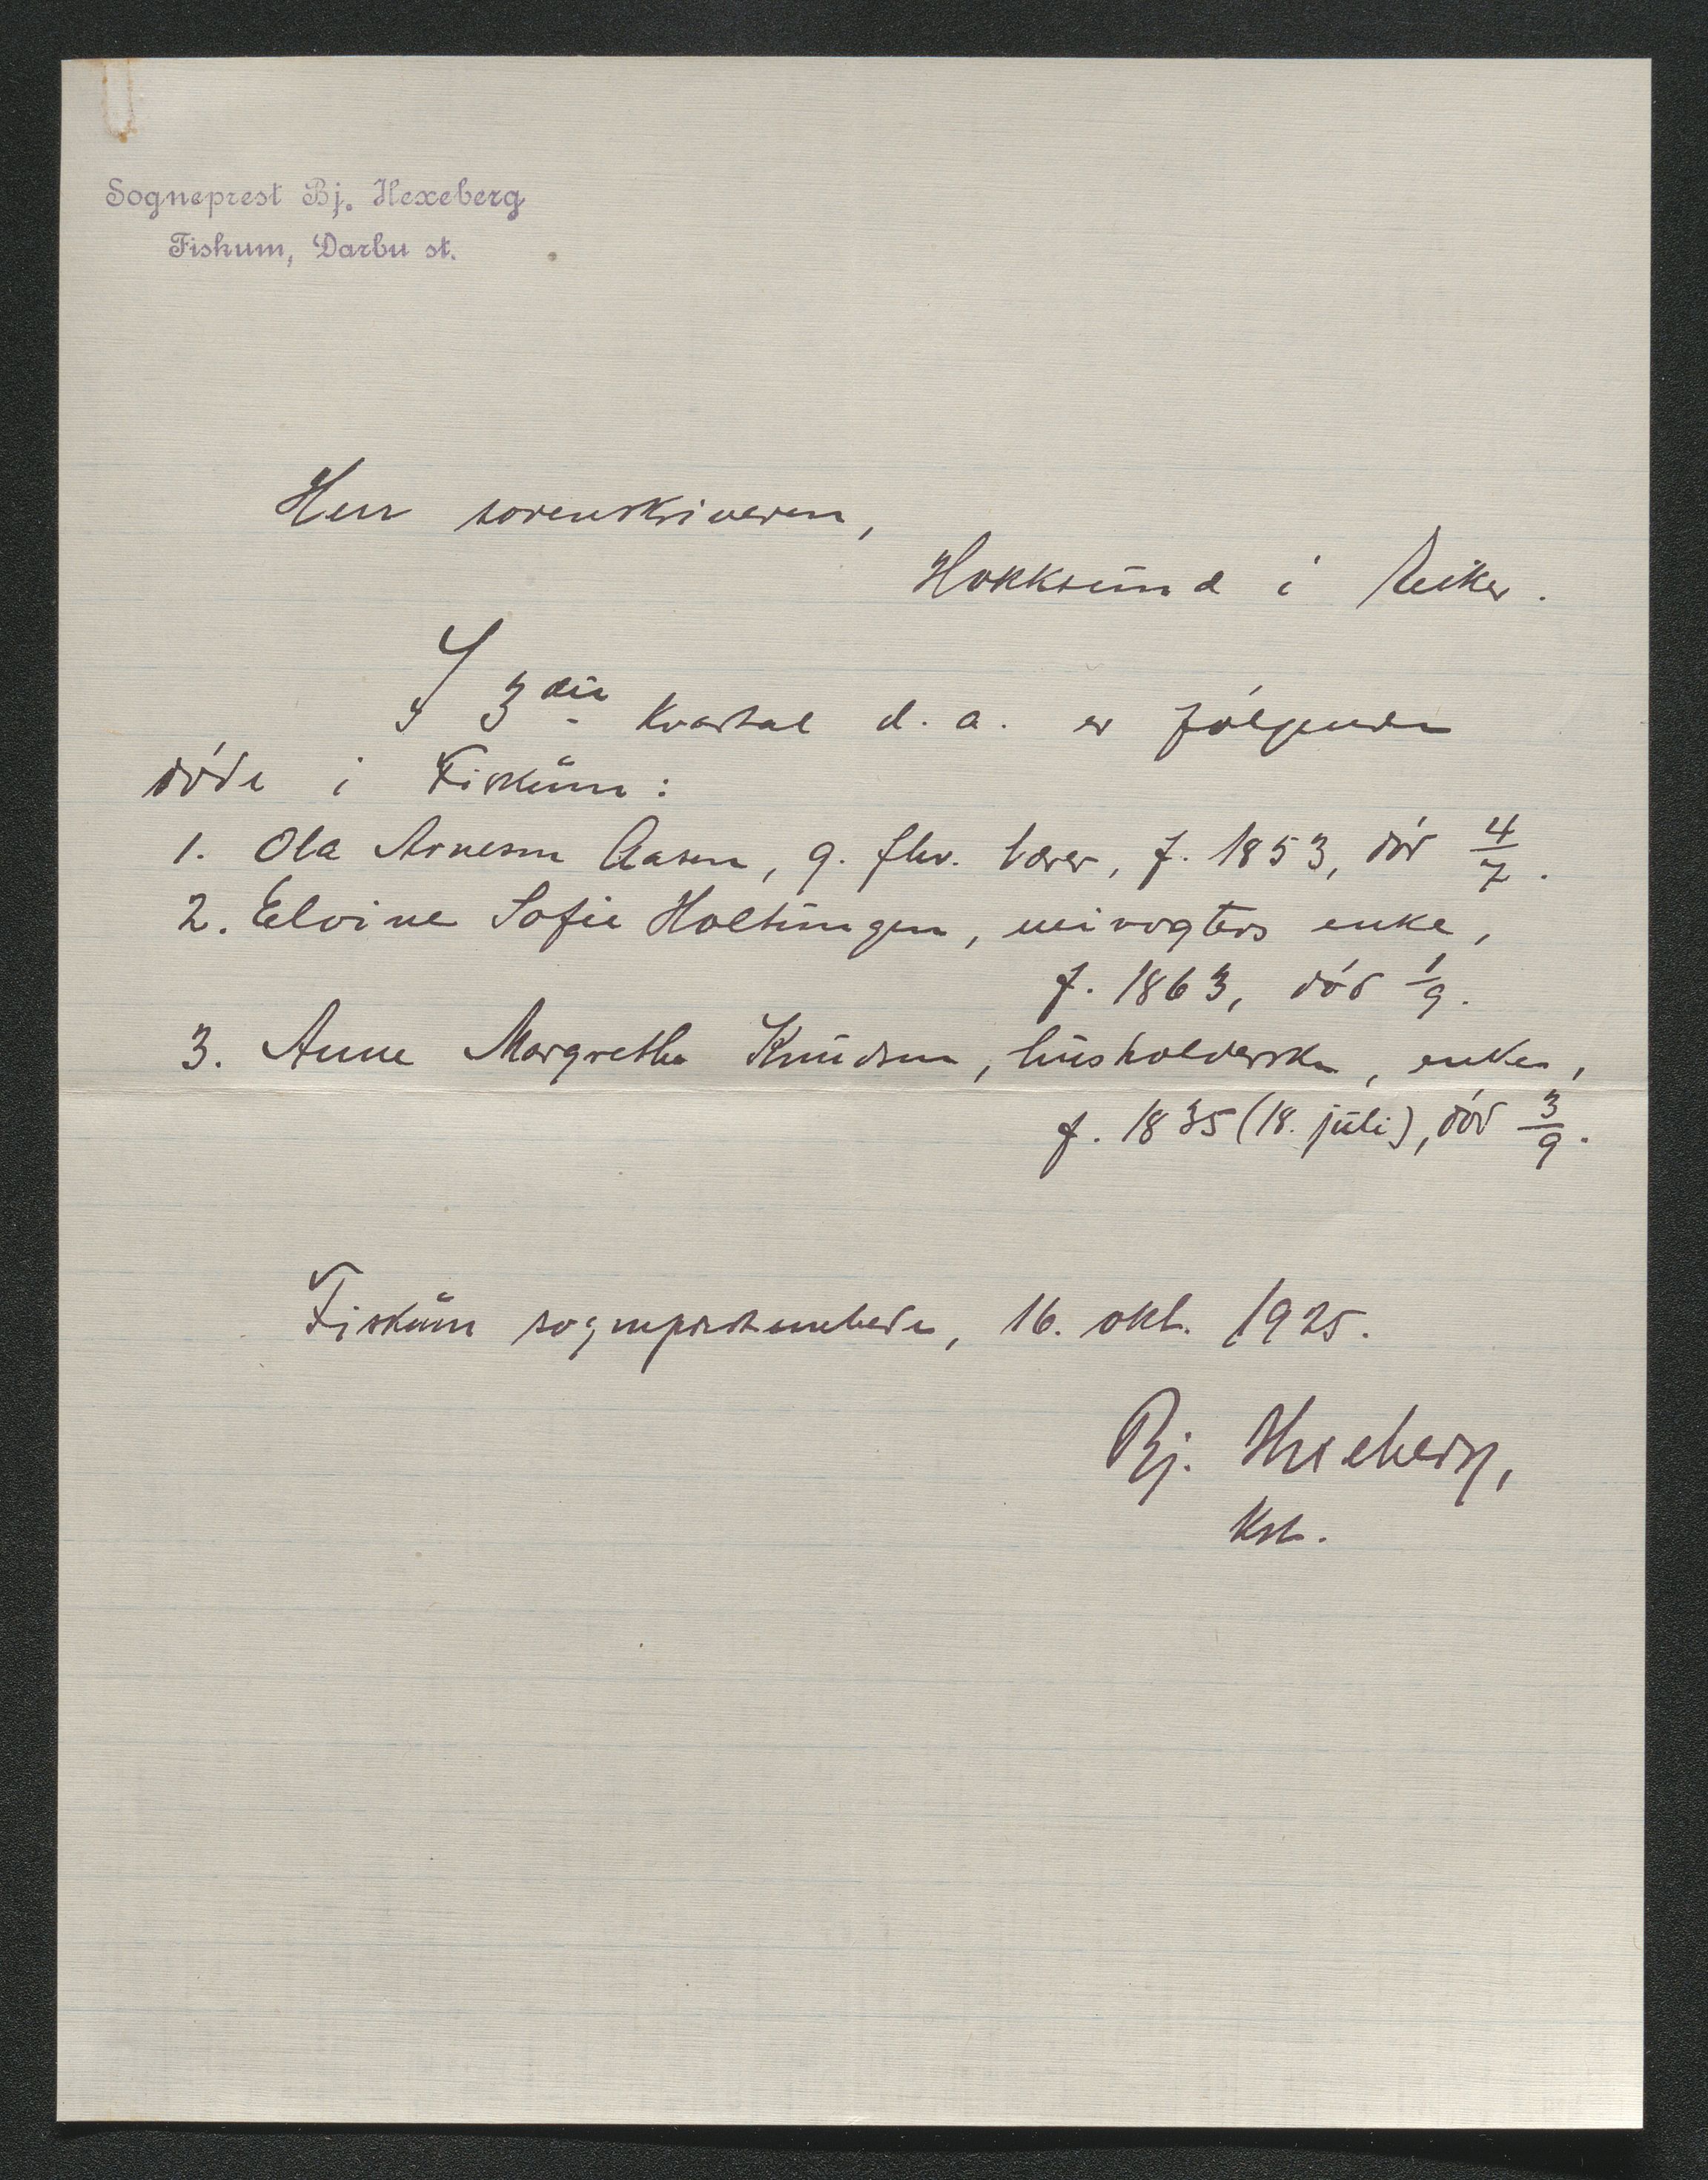 Sogneprest Bj. Hexeberg
Fiskum, Darbu st.
Herr sorenskriveren,
Hokksund i Eiker.
I 3die kvartal d. a. er følgende
døde i Fiskum:
1. Ola Arnesen Aasen, g. fhv. lærer, f. 1853, død 4/7.
2. Elvine Sofie Holtungen, veivogters enke,
f. 1863, død 1/9.
3. Anne Margrethe Knudsen, husholderske, enke,
f. 1835 (18. juli), død 3/9.
Fiskum sogneprestembede, 16. okt. 1925.
Bj. Hexeberg,
kst.